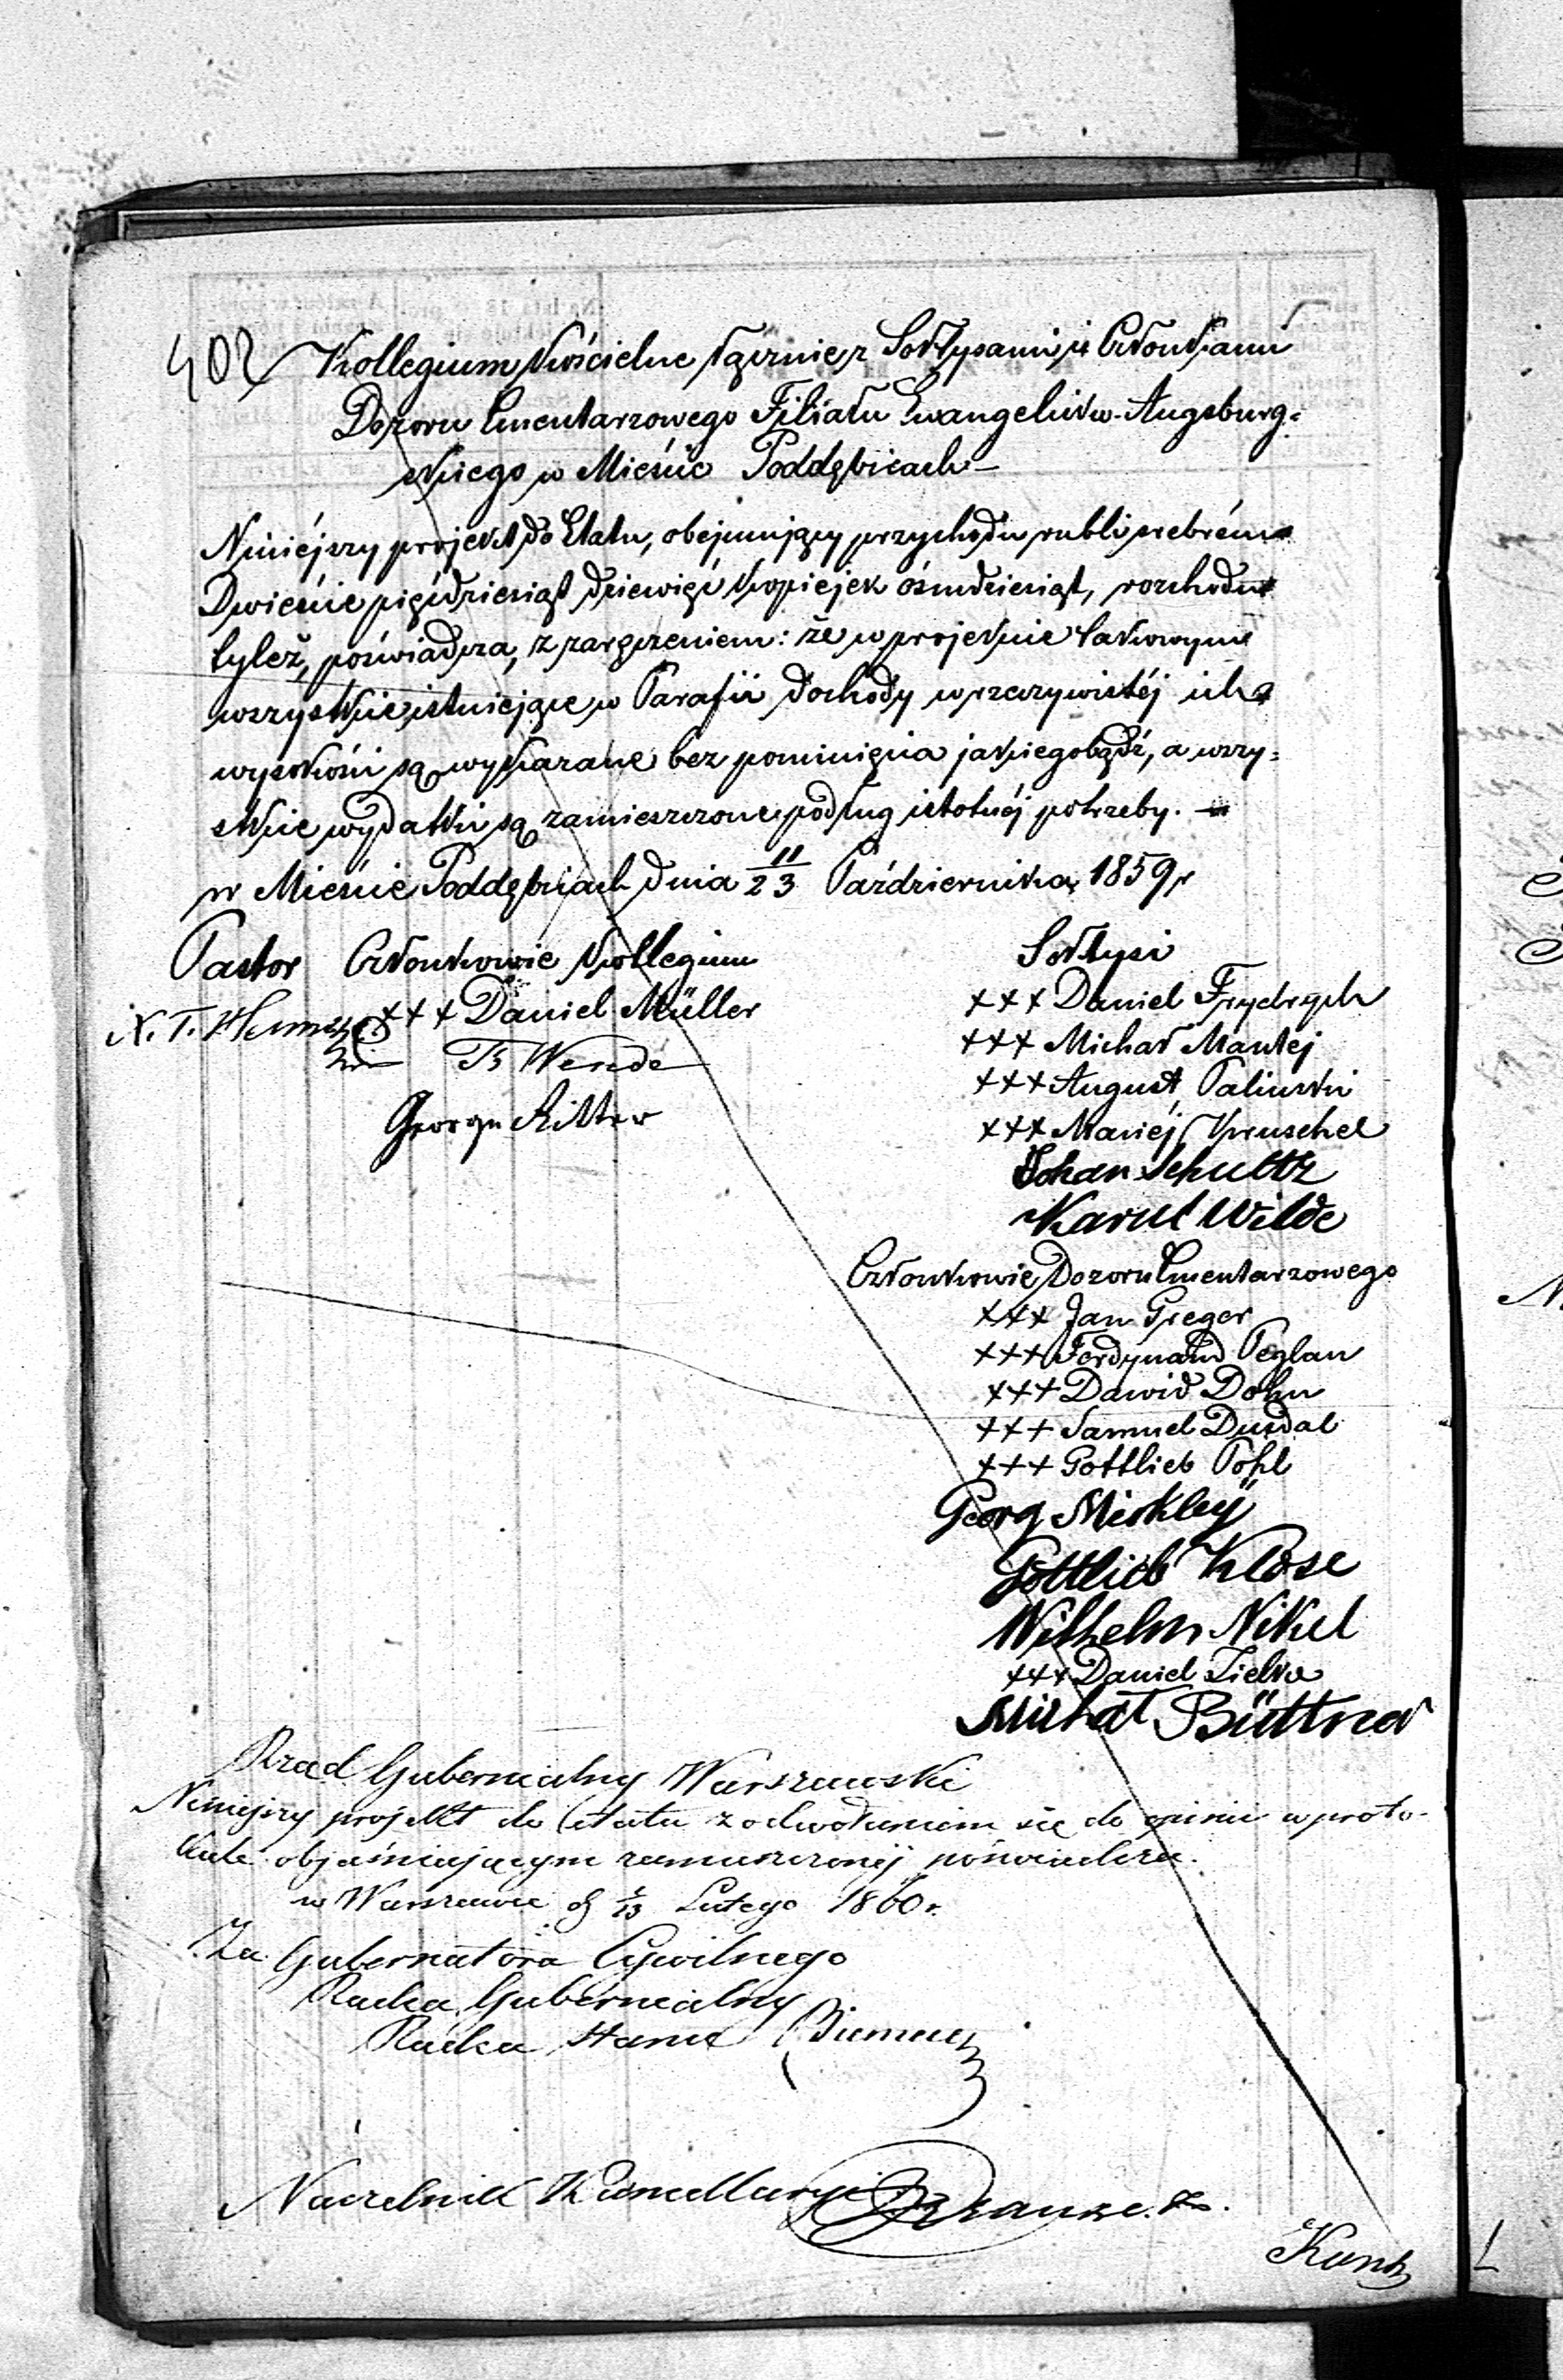 402
Kollegium Kościelne łącznie z Sołtysami i Członkami
Dozoru Cmentarzowego Filiału Ewangelicko-Augsburg-
skiego w Mieście Poddębicach –
Niniéjszy projekt do Etatu, obejmujący przychodu rubli srebrem
Dwieście pięćdziesiąt dziewięć kopiejek ośmdziesiąt, rozchodu
tyleż, poświadcza, z zaręczeniem: że w projekcie takowym
wszystkie istniejące w Parafii dochody w rzeczywistéj ich
wysokości są wykazane bez pominięcia jakiegobądź, a wszy-
stkie wydatki są zamieszczone podług istotnéj potrzeby. –
w Mieście Poddębicach dnia 11/23 Października 1859 r
Pastor Członkowie Kollegium
+++ Daniel Müller
Wende
George Ritter
Sołtysi
+++ Daniel Frydrych
+++ Michał Mantej
+++ August Paliński
+++ Maciéj Kruschel
Johan Schultz
Karul Wilde
Członkowie Dozoru Cmentarzowego
+++ Jan Greger
+++ Ferdynand Peglau
+++ Dawid Dohn
+++ Samuel Dusdal
+++ Gottlieb Pohl
Georg Mirkley
Gottlieb Klose
Wilhelm Nikel
+++ Daniel Zielke
Michał Büttner
Rząd Gubernialny Warszawski
Niniejszy projekt do Etatu z odwołaniem się do opinii w proto-
kule objaśniającym zamieszczonéj poświadcza.
w Warszawie d Lutego 1860 r.
Za Gubernatora Cywilnego
Radca Gubernialny
Radca Stanu
Naczelnik Kancellaryi
Kunk